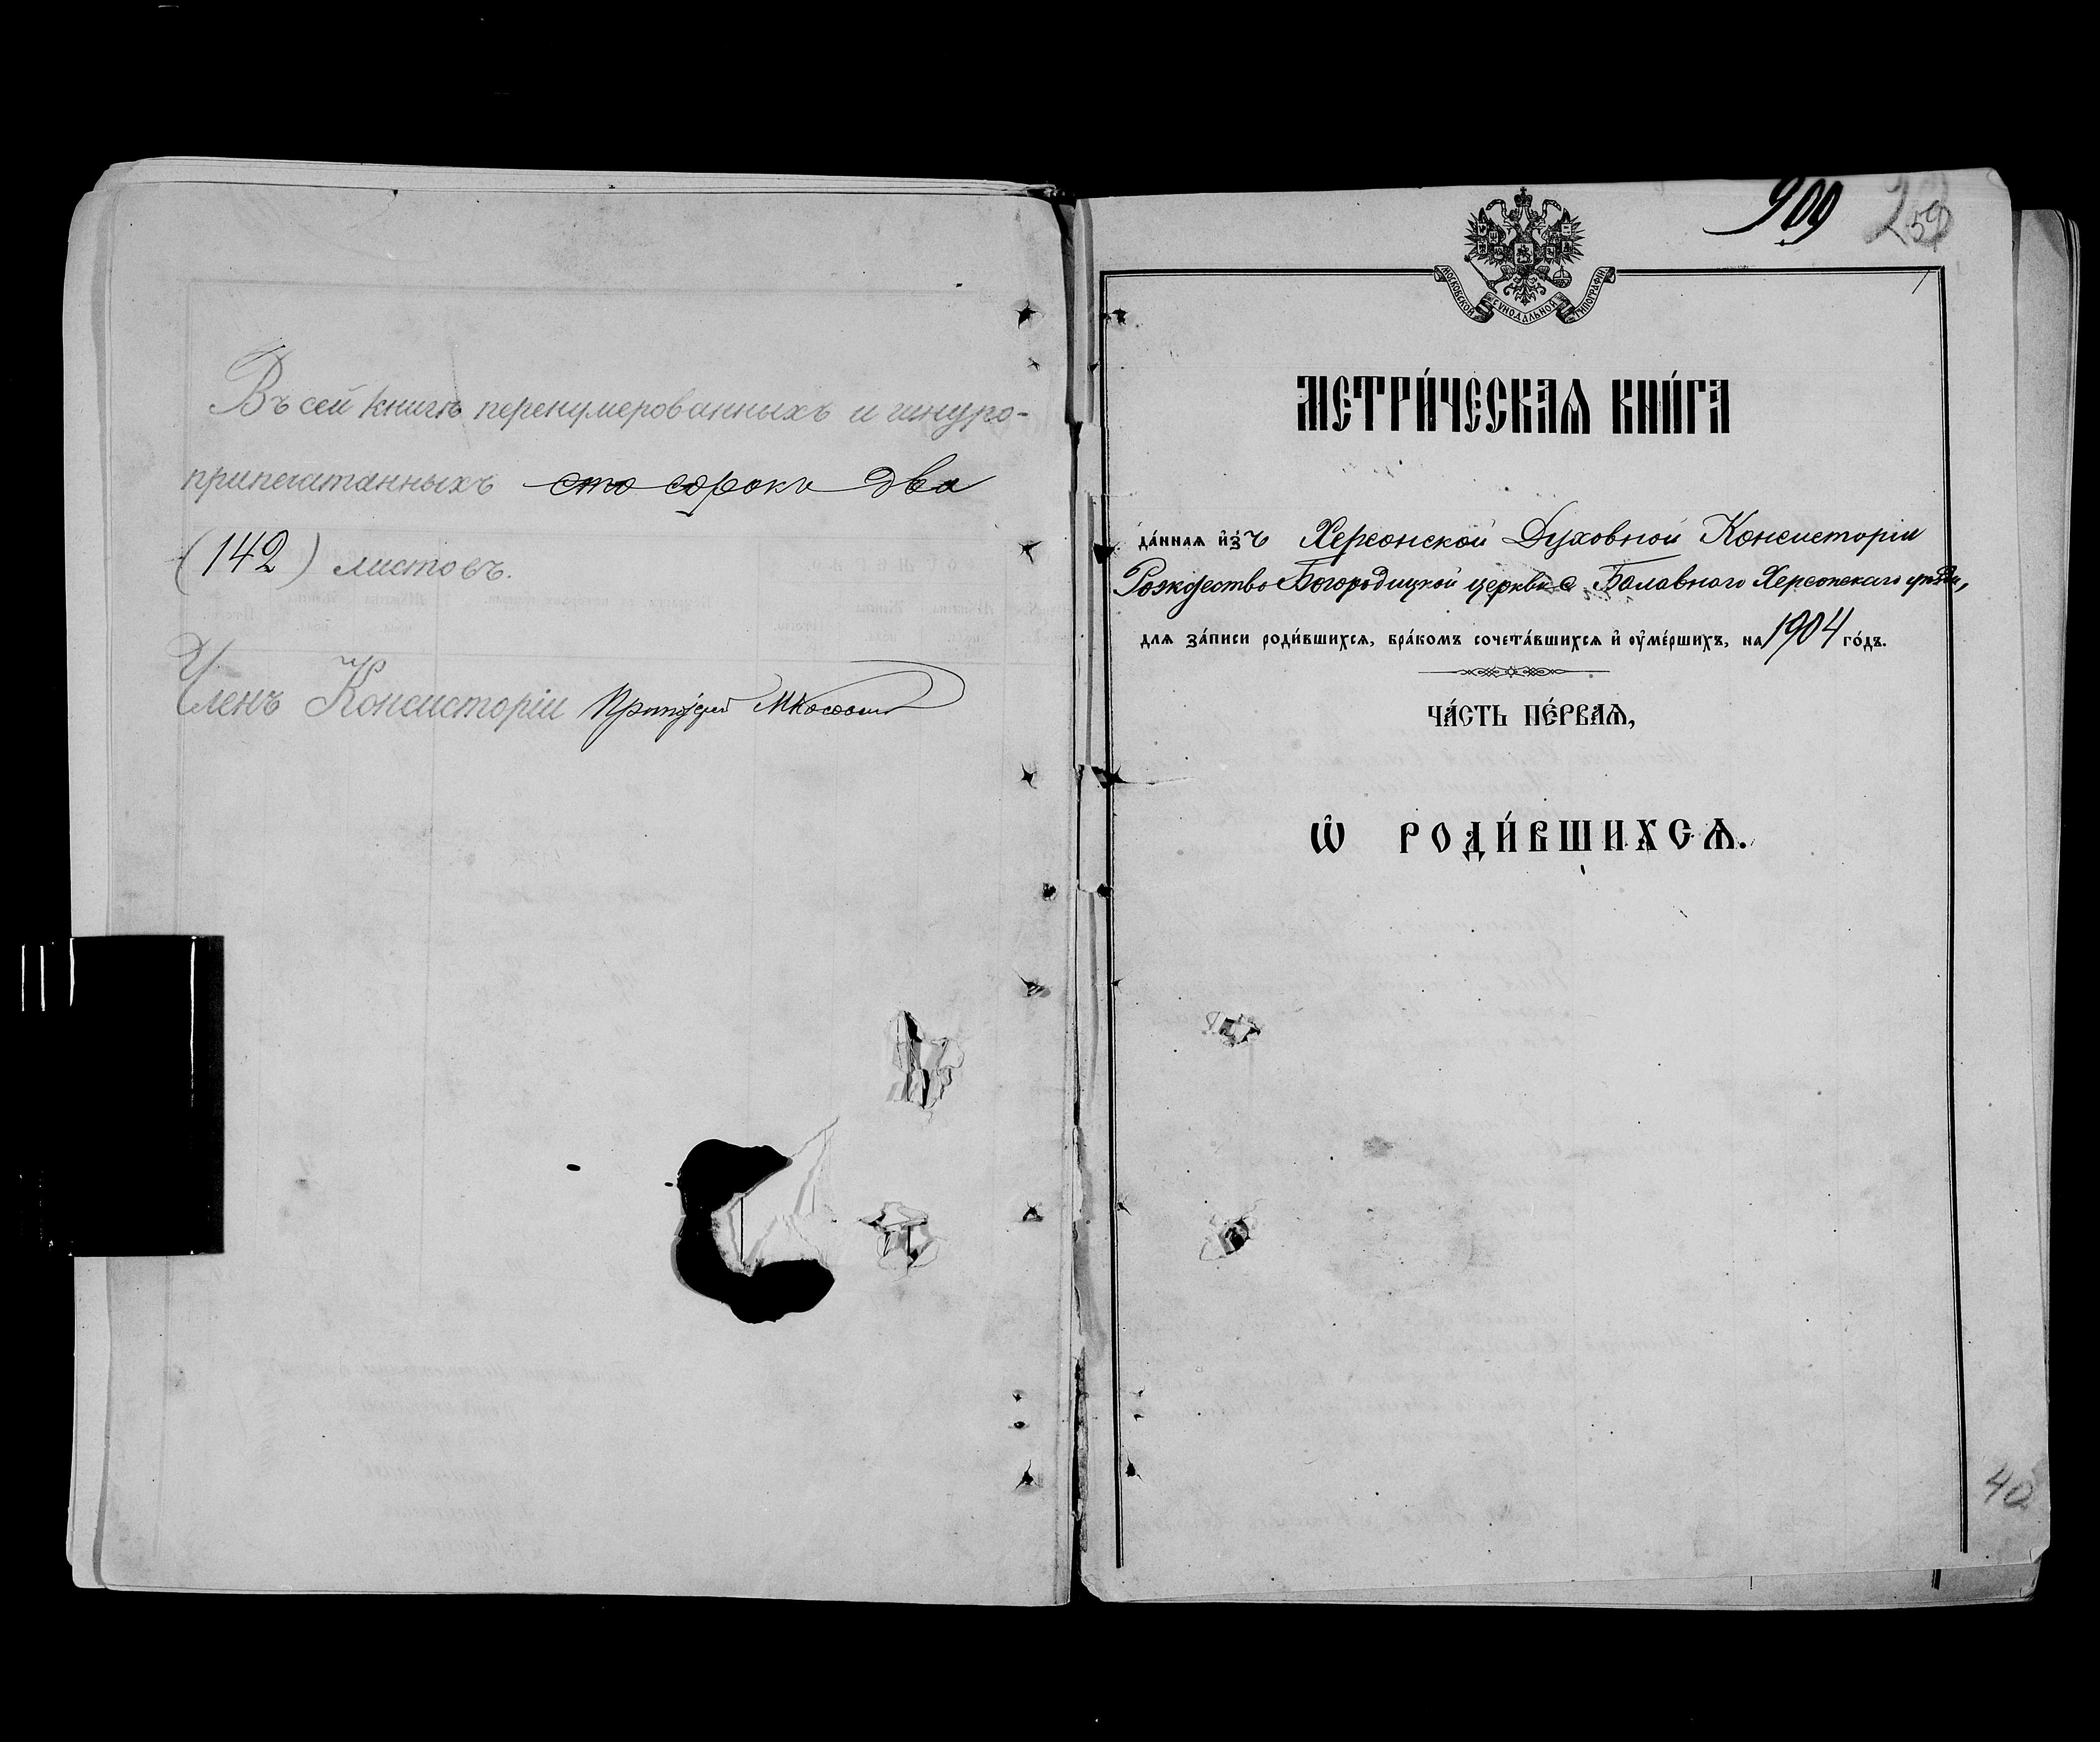 Въ сей книгѣ перенумерованныхъ и шнуро-
припечатанныхъ сто сорокъ два
(142) листовъ.
Членъ Консисторіи
909
259
МОСКОВСКОЙ СѴНОДАЛЬНОЙ ТИПОГРАФІИ
МЕТРИ́ЧЕСКАѦ КНИ́ГА
да́нная и҆з̾ъ Херсонской Духовной Консисторіи
Рождество Богородицкой церкви с. Балавного Херсонскаго уѣзда,
для за́писи роди́вшихся, бра́комъ сочета́вшихся и҆ оу҆ме́ршихъ, на 1904 го́дъ.
ЧА́СТЬ ПЕ́РВАѦ,
Ѡ҆ РОДИ́ВШИХСѦ.
40